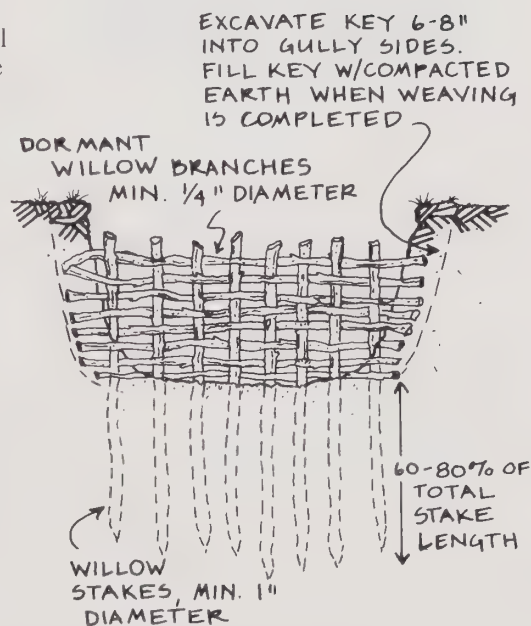 EXCAVATE KEY 6-8"
INTO GULLY SIDES.
FILL KEY W/COMPACTED
EARTH WHEN WEAVING
IS COMPLETED
DORMANT
WILLOW BRANCHES
MIN. 1/4" DIAMETER
60-80% OF
TOTAL
STAKE
LENGTH
WILLOW
STAKES, MIN. 1"
DIAMETER